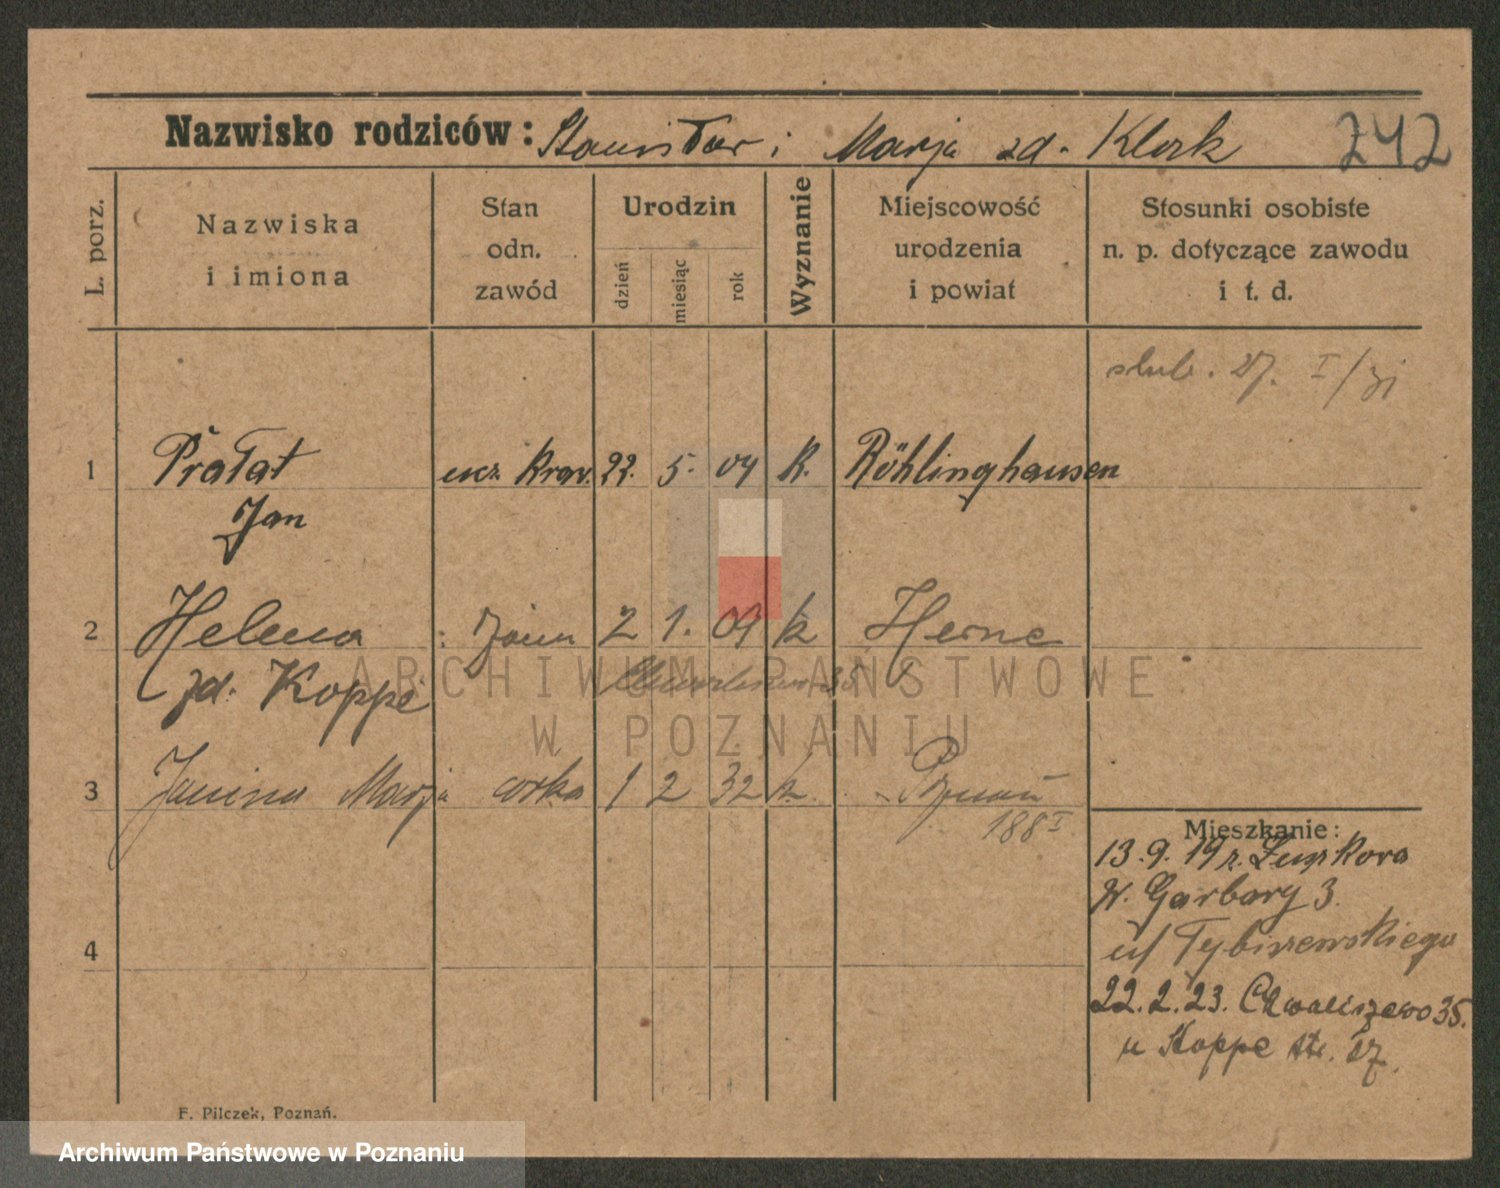 Nazwisko rodziców: Stanisław i Marja zd. Klork 242
L. porz.
Nazwiska
i imiona
Stan
odn.
zawód
Urodzin
dzień
miesiąc
rok
Wyznanie
Miejscowość
urodzenia
i powiat
Stosunki osobiste
n. p. dotyczące zawodu
i t. d.
ślub. 27. I/31
1 Prałat ucz. kraw. 22. 5. 04 k. Röhlinghausen
Jan
2 Helena żona 2 1. 09 k Herne
zd. Koppe
ARCHIWUM PAŃSTWOWE
W POZNANIU
3 Janina Marja córka 1 2 32 k. Poznań
188 I
Mieszkanie:
13. 9. 19 r.
W. Garbary 3.
u/ Tybiszewskiego
4
22. 2. 23. Chwaliszewo 35.
u Koppe
F. Pilczek, Poznań.
Archiwum Państwowe w Poznaniu